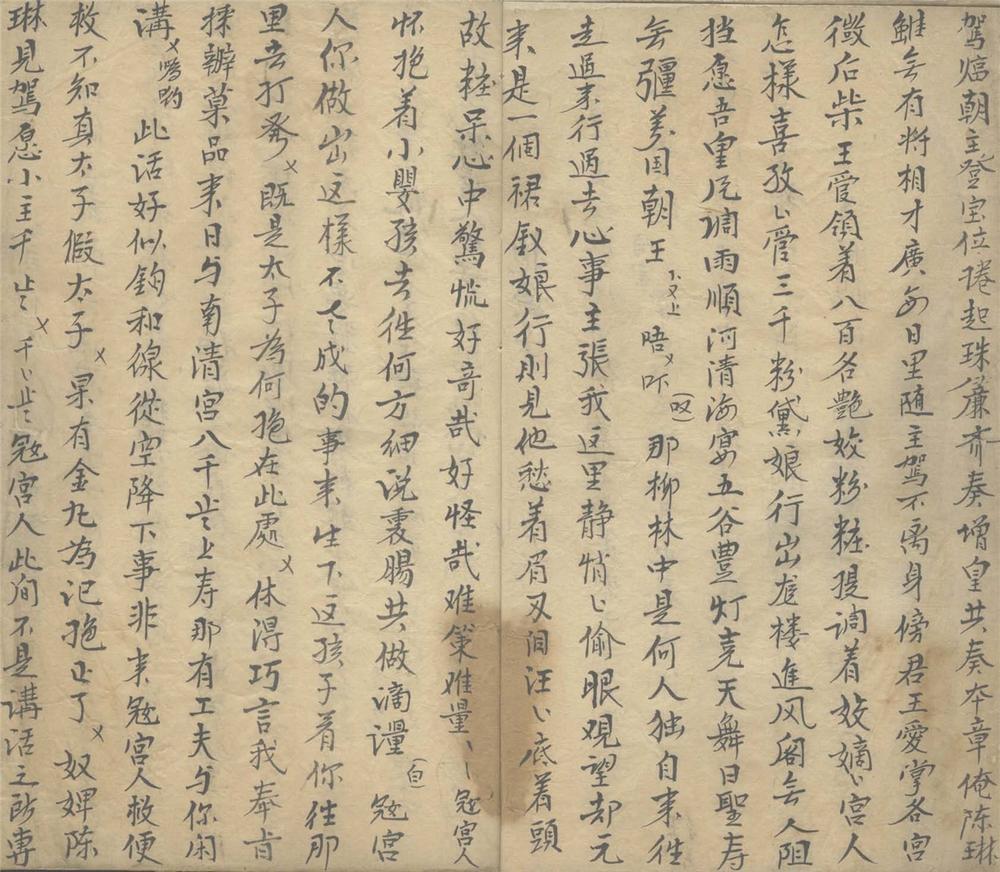 駕熖朝主登宝位捲起珠簾齐奏增皇共奏夲章俺陈琳
雖无有將相才廣勿日里随主駕不离身傍君王爱掌各宫
微后柴王管領着八百各艷姣粉粧提調着姣嫡〻宫人
怎樣喜孜〻管三千粉黛娘行出尨楼進风阁无人阻
挡愿吾皇風调雨順河清海宴五谷豊灯亮天舞日聖寿
无彊萬国朝王 卜又上 唔 吓 (叹) 那柳林中是何人独自来往
走過来行過去心事主張我这里静悄〻偷眼观望却元
来是一個裙釵娘行则見他愁着眉又泪汪〻底着頭
故粧呆心中驚慌好竒哉好怪哉难筞难量〻寇宫人
怀抱着小嬰孩去徃何方细说衷腸共做滴量 (白) 寇宫
人你做出这樣不 成的事来生下这孩子着你徃那
里去打发 既是太子為何抱在此處 休得巧言我奉旨
採辦菓品来日与南清宫八千止上寿那有工夫与你闲
講 此话好似鈎和線從空降下事非来寇宫人救便
救不知真太子假太子 果有金九為记抱上了 奴婢陈
琳見駕愿小主千止 千〻止 寇宫人此间不是講话之所専